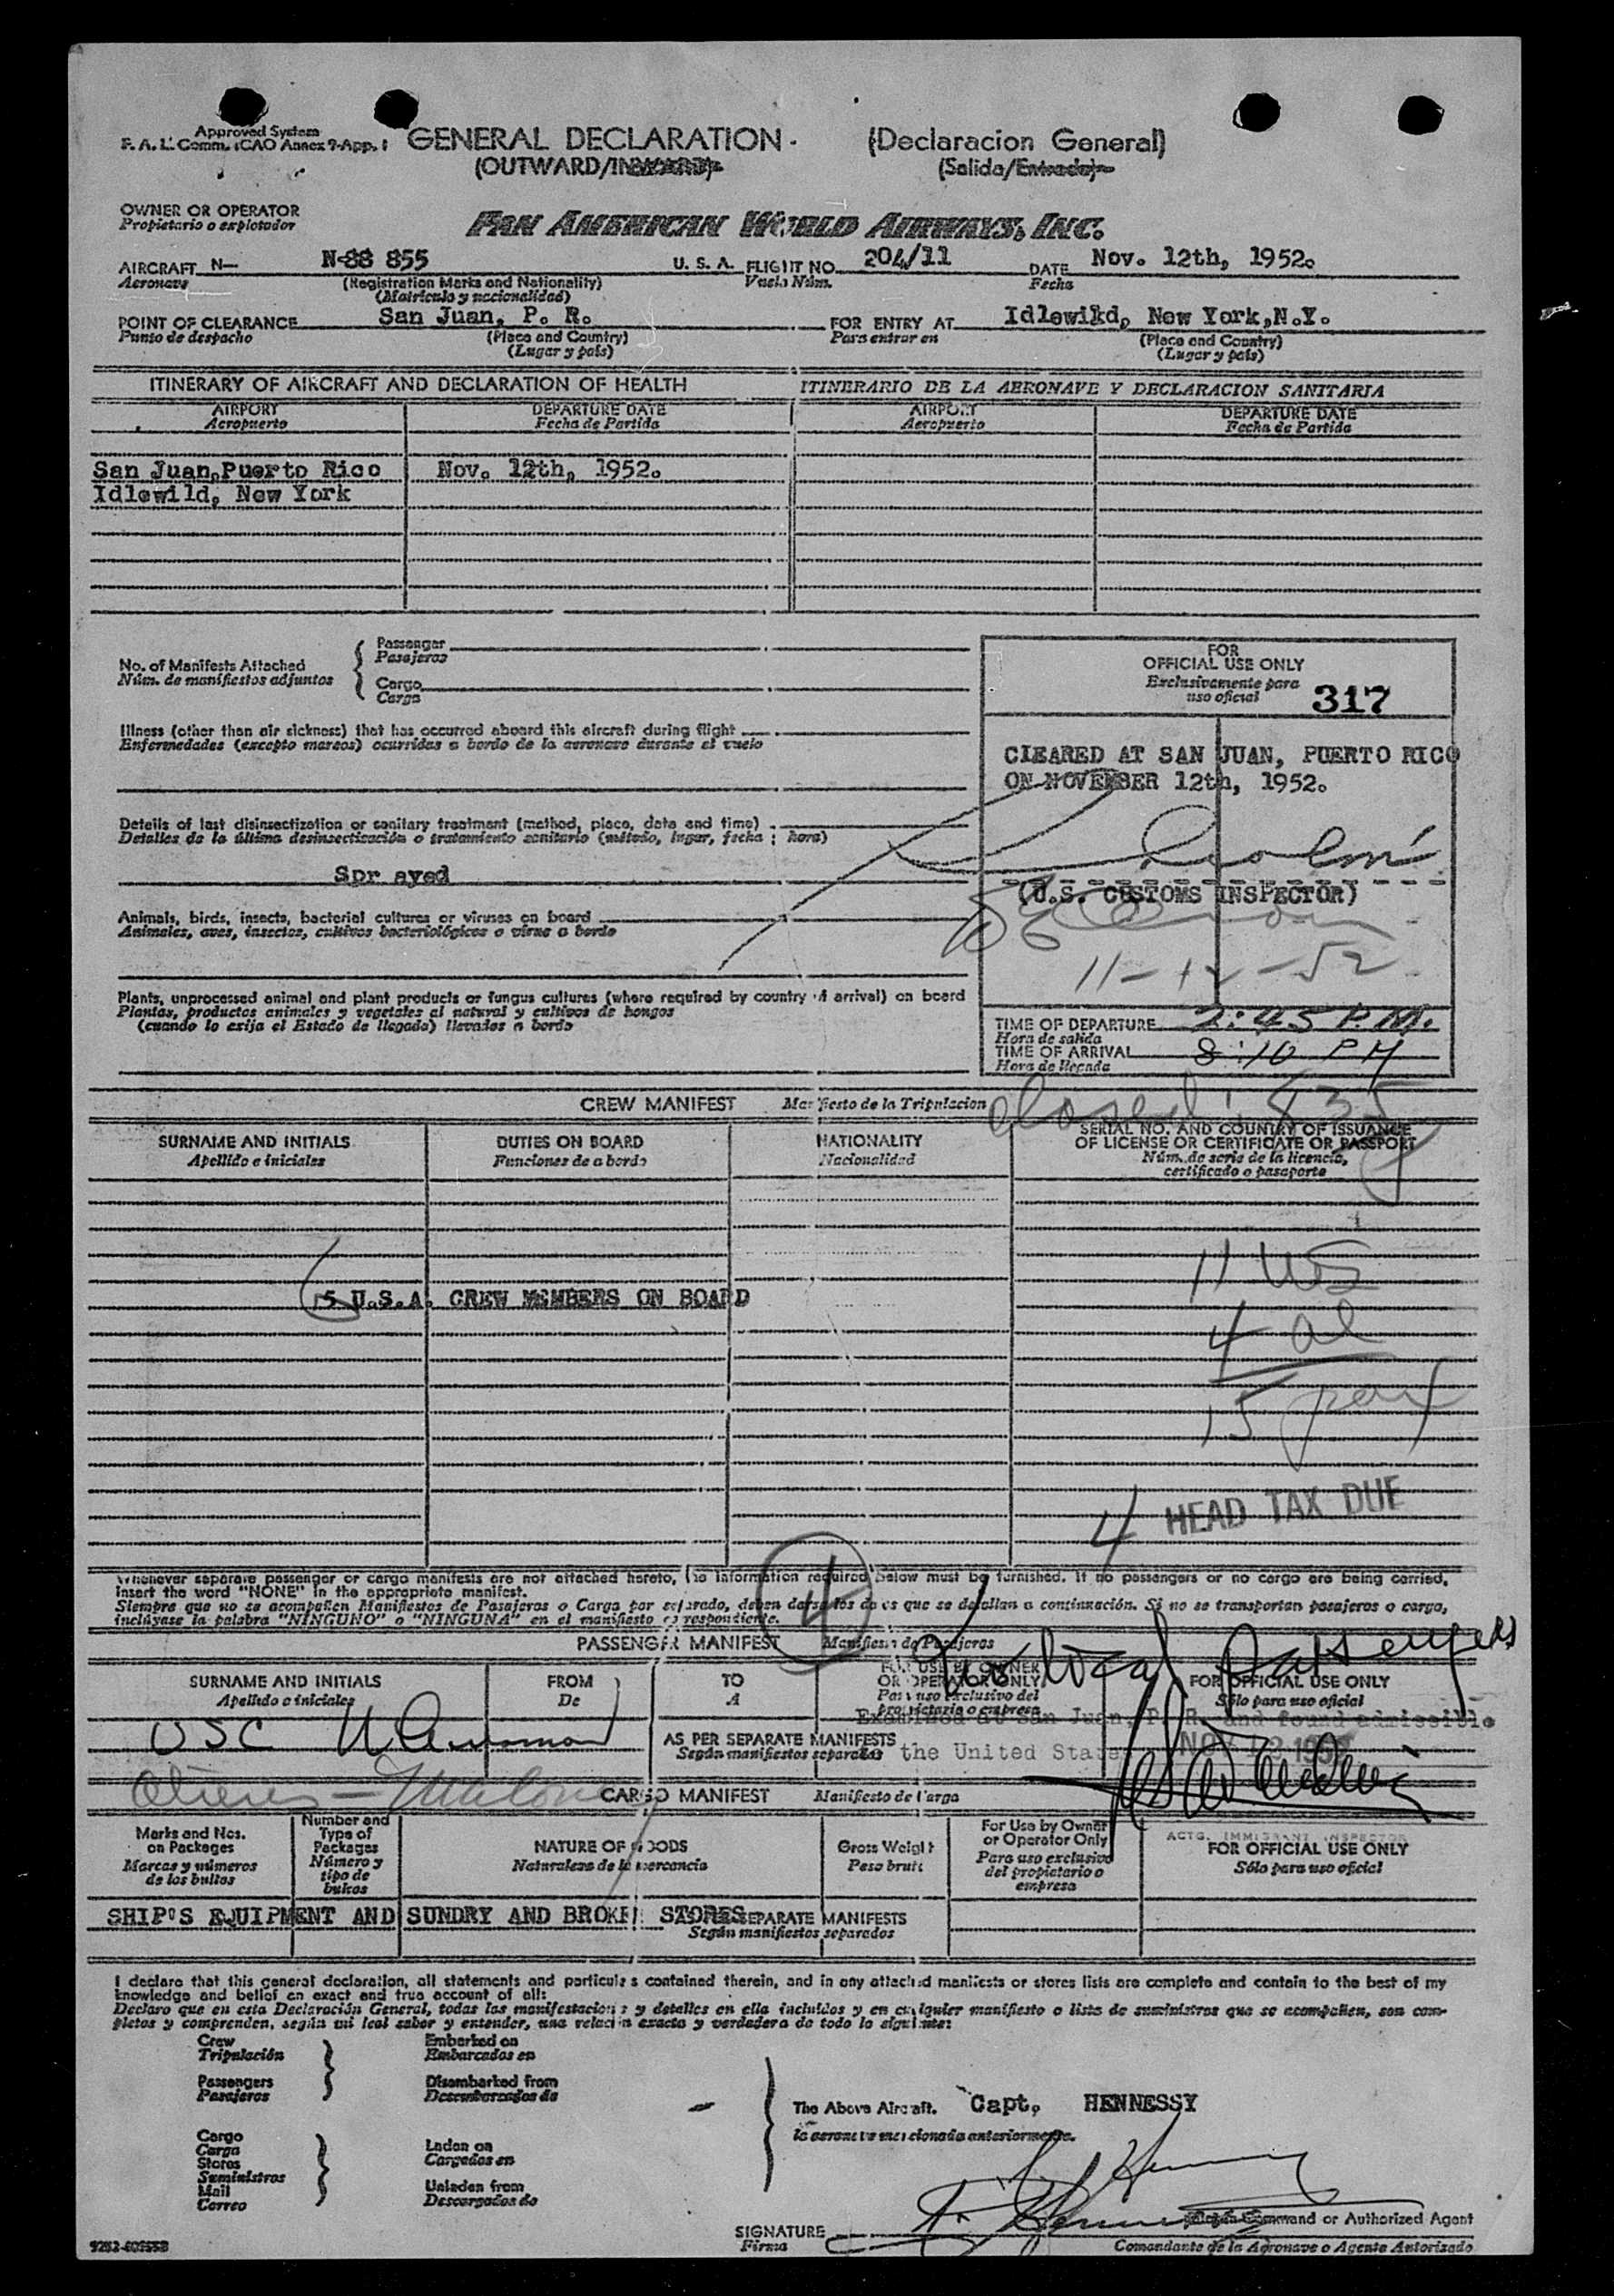 Approved System
F. A. L. Comm. ICAO Annex 9-App. 1
GENERAL DECLARATION. (Declaracion General)
(OUTWARD/INWARD) (Salida/Entrada)
OWNER OR OPERATOR
Propietario o explotador
PAN AMERICAN WORLD AIRWAYS, INC.
AIRCRAFT N- N-88 855 U. S. A. FLIGHT NO. 204/11 DATE Nov. 12th, 1952.
Aeronave (Registration Marks and Nationality) Vuelo Núm. Fecha
(Matricula y nacionalidad)
POINT OF CLEARANCE San Juan, P. R. FOR ENTRY AT Idlewild, New York,N.Y.
Punto de despacho (Place and Country) Para entrar en (Place and Country)
(Lugar y país) (Lugar y país)
ITINERARY OF AIRCRAFT AND DECLARATION OF HEALTH ITINERARIO DE LA AERONAVE Y DECLARACION SANITARIA
AIRPORT DEPARTURE DATE AIRPORT DEPARTURE DATE
Aeropuerto Fecha de Partida Aeropuerto Fecha de Partida
San Juan,Puerto Rico Nov. 12th, 1952.
Idlewild, New York
No. of Manifests Attached
Núm. de manifiestos adjuntos
Passenger
Pasajeros
Cargo
Carga
Illness (other than air sickness) that has occurred aboard this aircraft during flight
Enfermedades (excepto mareos) ocurridas a bordo de la aeronave durante el vuelo
Details of last disinsectization or sanitary treatment (method, place, date and time)
Detalles de la última desinsectización o tratamiento sanitario (método, lugar, fecha y hora)
Spr ayed
Animals, birds, insects, bacterial cultures or viruses on board
Animales, aves, insectos, cultivos bacteriológicos o virus a bordo
Plants, unprocessed animal and plant products or fungus cultures (where required by country of arrival) on board
Plantas, productos animales y vegetales al natural y cultivos de hongos
(cuando lo exija el Estado de llegada) llevados a bordo
FOR
OFFICIAL USE ONLY
Exclusivamente para
uso oficial 317
CLEARED AT SAN JUAN, PUERTO RICO
ON NOVEMBER 12th, 1952.
(U.S. CUSTOMS INSPECTOR)
11-12-52
TIME OF DEPARTURE 2:45 P.M.
Hora de salida
TIME OF ARRIVAL 8:10 PM
Hora de llegada
closed: 835
CREW MANIFEST Manifiesto de la Tripulacion
SURNAME AND INITIALS DUTIES ON BOARD NATIONALITY SERIAL NO. AND COUNTRY OF ISSUANCE
OF LICENSE OR CERTIFICATE OR PASSPORT
Apellido e iniciales Funciones de a bordo Nacionalidad Núm. de serie de la licencia,
certificado o pasaporte
5 U.S.A. CREW MEMBERS ON BOARD
11 US
4 al
15 pax
4 HEAD TAX DUE
Whenever separate passenger or cargo manifests are not attached hereto, the information required below must be furnished. If no passengers or no cargo are being carried,
insert the word "NONE" in the appropriate manifest.
Siempre que no se acompañen Manifiestos de Pasajeros o Carga por separado, deben darse los datos que se detallan a continuación. Si no se transportan pasajeros o carga,
inclúyase la palabra "NINGUNO" o "NINGUNA" en el manifiesto correspondiente.
4
No local passengers
PASSENGER MANIFEST Manifiesto de Pasajeros
SURNAME AND INITIALS FROM TO FOR USE BY OWNER
OR OPERATOR ONLY FOR OFFICIAL USE ONLY
Apellido e iniciales De A Para uso exclusivo del
propietario o empresa Sólo para uso oficial
Examined at San Juan, P. R. and found admissible
USC
AS PER SEPARATE MANIFESTS
Según manifiestos separados
the United States
NOV 12 1952
Aliens - Malone
CARGO MANIFEST Manifiesto de Carga
ACTG. IMMIGRANT INSPECTOR
Marks and Nos.
on Packages
Marcas y números
de los bultos
Number and
Type of
Packages
Número y
tipo de
bultos
NATURE OF GOODS
Naturaleza de la mercancia
Gross Weight
Peso bruto
For Use by Owner
or Operator Only
Para uso exclusivo
del propietario o
empresa
FOR OFFICIAL USE ONLY
Sólo para uso oficial
SHIP'S EQUIPMENT AND SUNDRY AND BROKEN STORES
AS PER SEPARATE MANIFESTS
Según manifiestos separados
I declare that this general declaration, all statements and particulars contained therein, and in any attached manifests or stores lists are complete and contain to the best of my
knowledge and belief an exact and true account of all:
Declaro que en esta Declaración General, todas las manifestaciones y detalles en ella incluídos y en cualquier manifiesto o lista de suministros que se acompañen, son com-
pletos y comprenden, según mi leal saber y entender, una relación exacta y verdadera de todo lo siguiente:
Crew
Tripulación
Passengers
Pasajeros
Embarked on
Embarcados en
Disembarked from
Desembarcados de
Cargo
Carga
Stores
Suministros
Mail
Correo
Laden on
Cargados en
Unladen from
Descargados de
The Above Aircraft. Capt. HENNESSY
la aeronave mencionada anteriormente.
SIGNATURE
Firma
Pilot in Command or Authorized Agent
Comandante de la Aeronave o Agente Autorizado